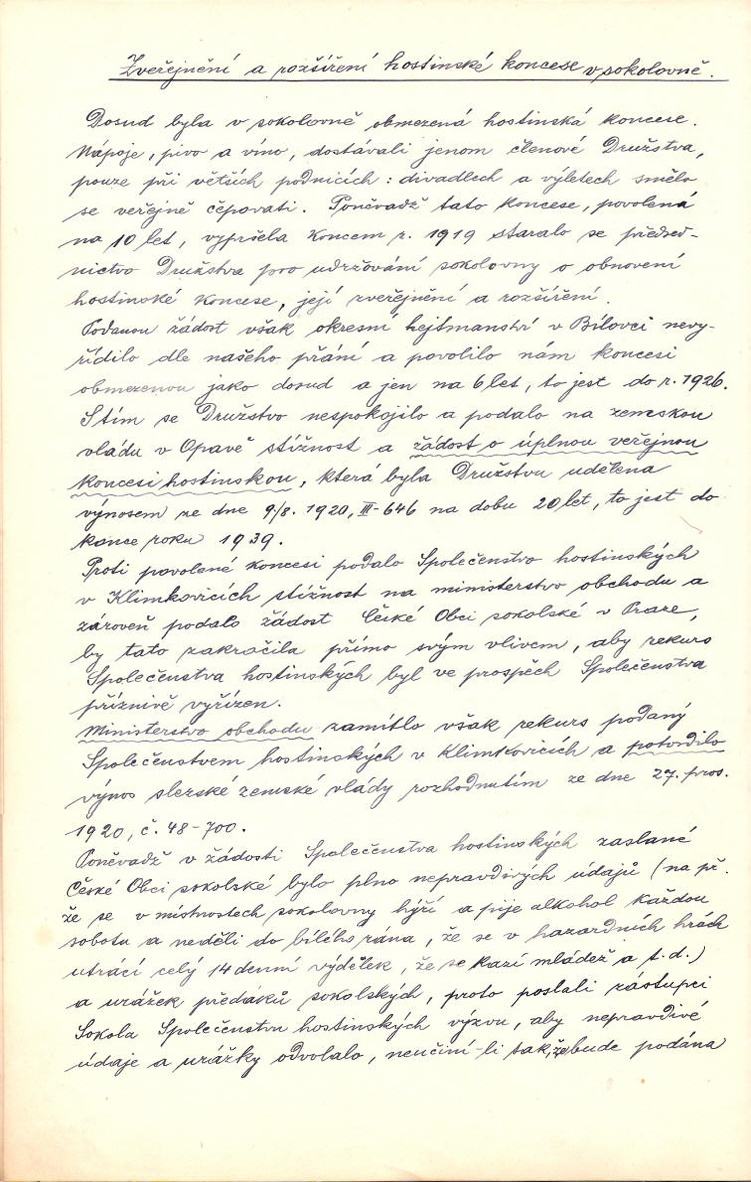 Zveřejnění a rozšíření hostinské koncese v sokolovně.
Dosud byla v sokolovně obmezená hostinská koncese.
Nápoje, pivo a víno, dostávali jenom členové Družstva,
pouze při větších podnicích: divadlech a výletech smělo
se veřejně čepovati. Poněvadž tato koncese, povolená
na 10 let, vypršela koncem r. 1919 staralo se předsed-
nictvo Družstva pro udržování sokolovny o obnovení
hostinské koncese, její zveřejnění a rozšíření.
Podanou žádost však okresní hejtmanství v Bílovci nevy-
řídilo dle našeho přání a povolilo nám koncesi
obmezenou jako dosud a jen na 6 let, to jest do r. 1926.
S tím se Družstvo nespokojilo a podalo na zemskou
vládu v Opavě stížnost a žádost o úplnou veřejnou
koncesi hostinskou, která byla Družstvu udělena
výnosem ze dne 9/8. 1920, III-646 na dobu 20 let, to jest do
konce roku 1939.
Proti povolené koncesi podalo Společenstvo hostinských
v Klimkovicích stížnost na ministerstvo obchodu a
zároveň podalo žádost České Obci sokolské v Praze,
by tato zakračila přímo svým vlivem, aby rekurs
Společenstva hostinských byl ve prospěch Společenstva
příznivě vyřízen.
Ministerstvo obchodu zamítlo však rekurs podaný
Společenstvem hostinských v Klimkovicích a potvrdilo
výnos slezské zemské vlády rozhodnutím ze dne 27. pros.
1920, č. 48-700.
Poněvadž v žádosti Společenstva hostinských zaslané
České Obci sokolské bylo plno nepravdivých údajů (na př.
že se v místnostech sokolovny hýří a pije alkohol každou
sobotu a neděli do bílého rána, že se v hazardních hrách
utrácí celý 14 denní výdělek, že se kazí mládež a t. d.)
a urážek předáků sokolských, proto poslali zástupci
Sokola Společenstvu hostinských výzvu, aby nepravdivé
údaje a urážky odvolalo, neučiní-li tak, že bude podána